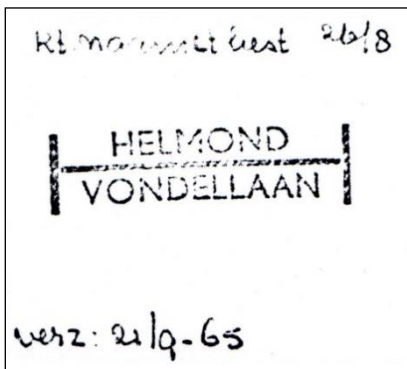 26/8
HELMOND
VONDELLAAN
verz: 21/9-65